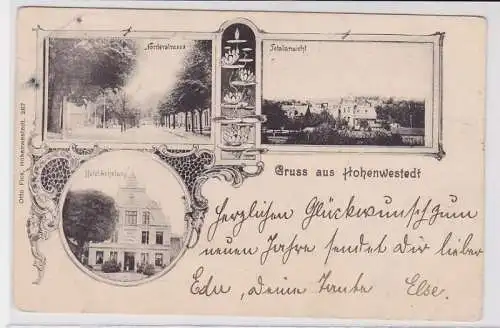 Norderstrasse
Totalansicht
Otto Fick, Hohenwestedt. 267
Gruss aus Hohenwestedt
Herzlichen Glückwunsch zum
neuen Jahre sendet Dir lieber
Edu, Deine Tante Else.